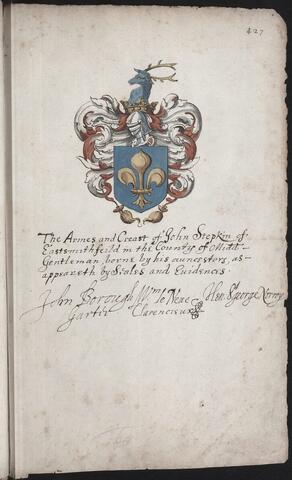 427
The Armes and Creast of John Stepkin of
Eastsmithfeild in the County of Midd:
Gentleman, borne by his auncestors, as
appeareth by Seales and Euidences.
John Borough Wm le Neve Hen: St George Norroy
Garter Clarenceux